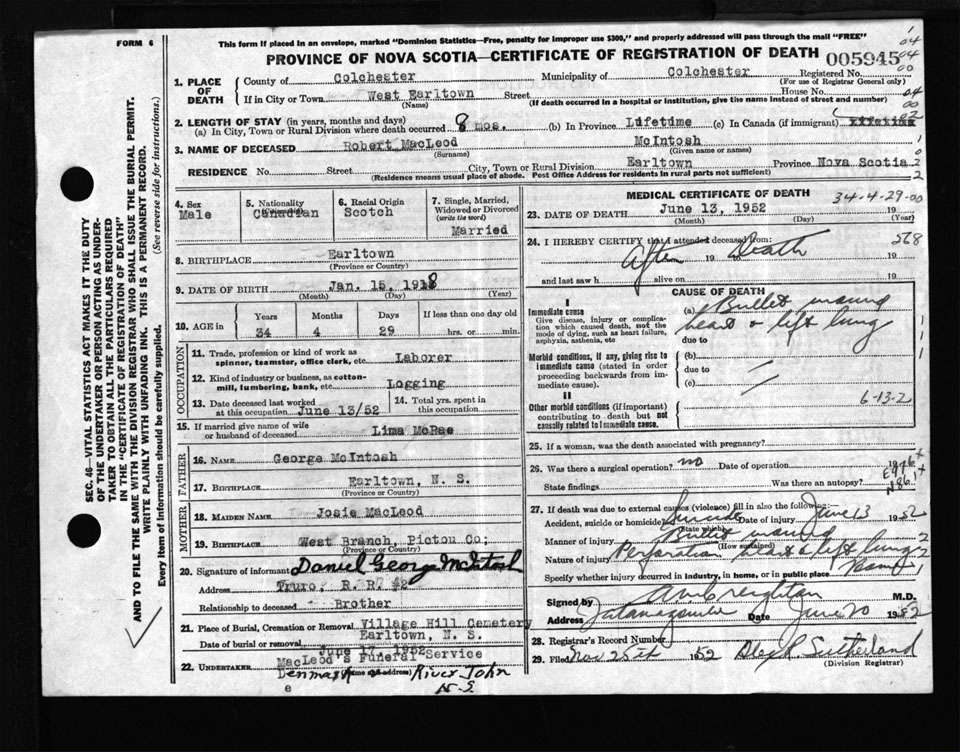 FORM 6
This form if placed in an envelope, marked "Dominion Statistics—Free, penalty for improper use $300," and properly addressed will pass through the mail "FREE"
PROVINCE OF NOVA SCOTIA—CERTIFICATE OF REGISTRATION OF DEATH
005945
1. PLACE OF DEATH
County of Colchester Municipality of Colchester Registered No.
(For use of Registrar General only)
If in City or Town West Earltown Street House No.
(Name) (If death occurred in a hospital or institution, give the name instead of street and number)
2. LENGTH OF STAY (in years, months and days)
(a) In City, Town or Rural Division where death occurred 8 mos. (b) In Province Lifetime (c) In Canada (if immigrant) Lifetime
3. NAME OF DECEASED Robert MacLeod McIntosh
(Surname) (Given name or names)
RESIDENCE No. Street City, Town or Rural Division Earltown Province Nova Scotia
(Residence means usual place of abode. Post Office Address for residents in rural parts not sufficient)
4. Sex
Male
5. Nationality
Canadian
6. Racial Origin
Scotch
7. Single, Married, Widowed or Divorced
(write the word)
Married
8. BIRTHPLACE Earltown
(Province or Country)
9. DATE OF BIRTH Jan. 15, 1918
(Month) (Day) (Year)
10. AGE in
Years Months Days If less than one day old
34 4 29 hrs. or min.
OCCUPATION
11. Trade, profession or kind of work as
spinner, teamster, office clerk, etc. Laborer
12. Kind of industry or business, as cotton-
mill, lumbering, bank, etc. Logging
13. Date deceased last worked
at this occupation June 13/52
14. Total yrs. spent in
this occupation
15. If married give name of wife
or husband of deceased Lima McRae
FATHER
16. NAME George McIntosh
17. BIRTHPLACE Earltown, N. S.
(Province or Country)
MOTHER
18. MAIDEN NAME Josie MacLeod
19. BIRTHPLACE West Branch, Pictou Co;
(Province or Country)
20. Signature of informant Daniel George McIntosh
Address Truro, R. R. #2
Relationship to deceased Brother
21. Place of Burial, Cremation or Removal Village Hill Cemetery
Earltown, N. S.
Date of burial or removal June 17, 1952
22. UNDERTAKER MacLeod's Funeral Service
(Name and address)
Denmark River John
e N.S
MEDICAL CERTIFICATE OF DEATH
34-4-29-00
23. DATE OF DEATH June 13, 1952 19
(Month) (Day) (Year)
24. I HEREBY CERTIFY that I attended deceased from:
568
After 19 to Death 19
and last saw h alive on 19
CAUSE OF DEATH
I
Immediate cause
Give disease, injury or complica-
tion which caused death, not the
mode of dying, such as heart failure,
asphyxia, asthenia, etc
(a) Bullet wound
heart & left lung
due to
Morbid conditions, if any, giving rise to
immediate cause (stated in order
proceeding backwards from im-
mediate cause).
(b)
due to
(c)
II
Other morbid conditions (if important)
contributing to death but not
causally related to immediate cause.
6-13-2
25. If a woman, was the death associated with pregnancy?
26. Was there a surgical operation? no Date of operation
State findings Was there an autopsy?
27. If death was due to external causes (violence) fill in also the following:
Accident, suicide or homicide Suicide Date of injury June 13 1952
(State which)
Manner of injury Bullet wound
(How sustained)
Nature of injury Perforation heart & left lung
Specify whether injury occurred in industry, in home, or in public place
Signed by M.D.
Address Tatamagouche Date June 20 1952
28. Registrar's Record Number
29. Filed Nov 25th 1952 Alex R. Sutherland
(Division Registrar)
SEC. 46—VITAL STATISTICS ACT MAKES IT THE DUTY
OF THE UNDERTAKER OR PERSON ACTING AS UNDER-
TAKER TO OBTAIN ALL THE PARTICULARS REQUIRED
IN THE "CERTIFICATE OF REGISTRATION OF DEATH"
AND TO FILE THE SAME WITH THE DIVISION REGISTRAR WHO SHALL ISSUE THE BURIAL PERMIT.
WRITE PLAINLY WITH UNFADING INK. THIS IS A PERMANENT RECORD.
Every item of information should be carefully supplied. (See reverse side for instructions.)